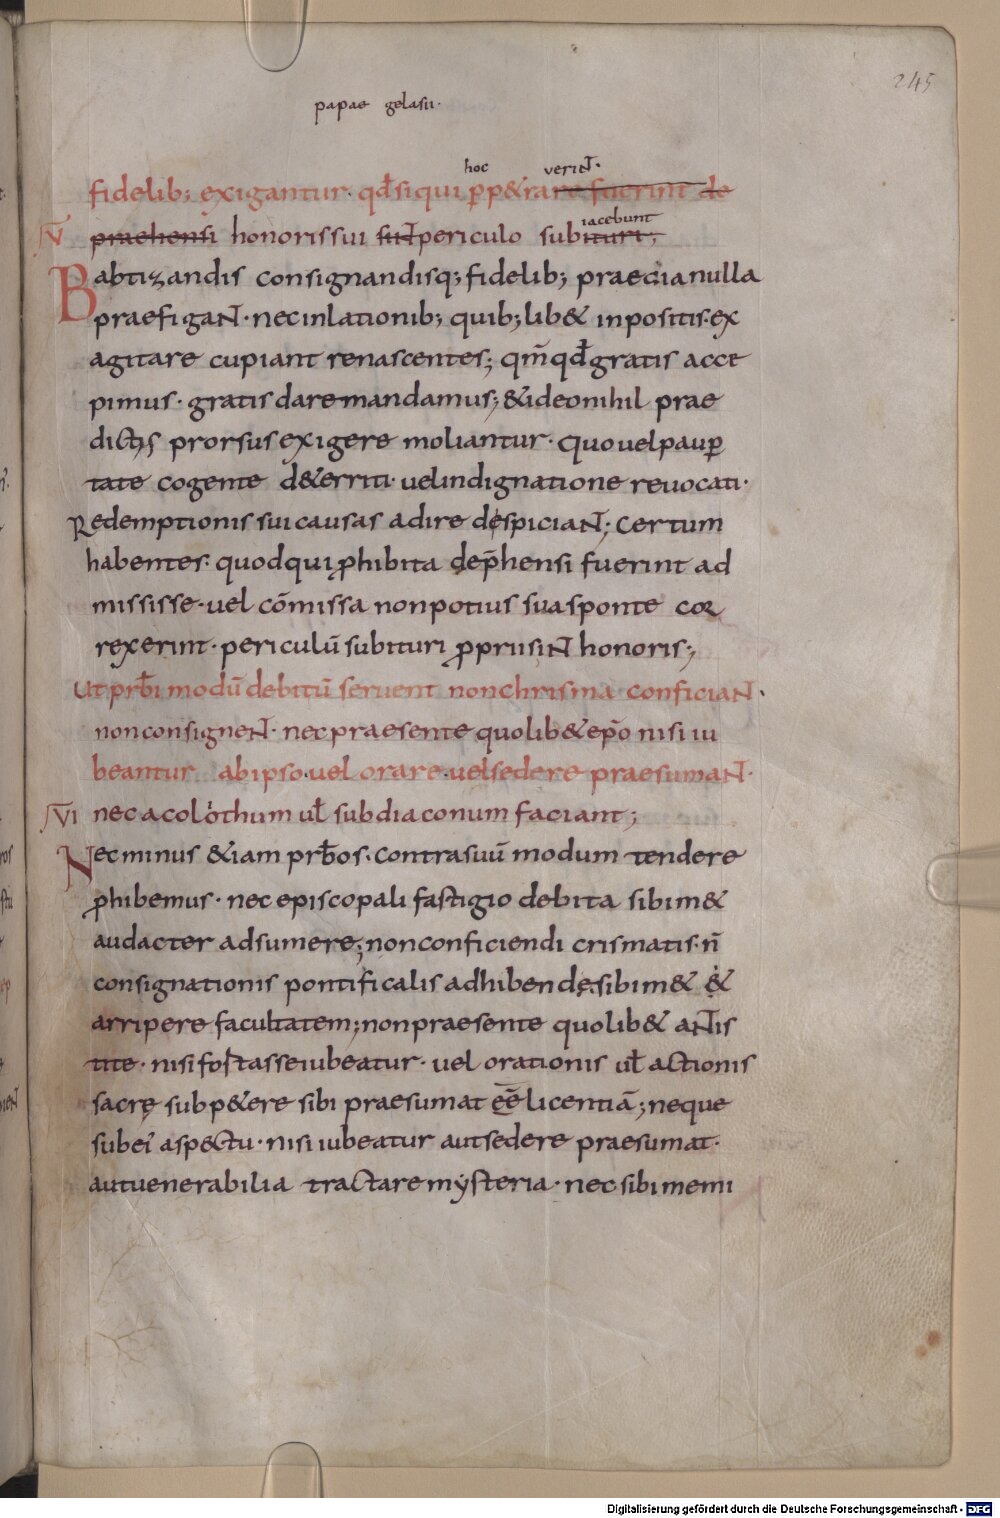 245
papae gelasii·
hoc verīN̄·
fidelib; exigantur· qđsiqui ꝑp&rare fuerint de
iacebunt
V praehensi honoris sui suN̄ periculo subituri;
Babtizandis consignandisq; fidelib; praecia nulla
praefigaN̄· nec inlationib; quib;lib& inpositis· ex
agitare cupiant renascentes; qm̄ qđ gratis acce
pimus· gratis dare mandamus; &ideo nihil prae
dictis prorsus exigere moliantur· quo uel pauꝑ
tate cogente d&erriti· uel indignatione reuocati·
Redemptionis sui causas adire despiciaN̄; certum
habentes· quod qui ꝓhibita dep̄hensi fuerint ad
misisse· uel cōmissa non potius sua sponte cor
rexerint· periculū subituri ꝓprii siN̄ honoris;
Ut prb̄i modū debitū seruent non chrisma conficiaN̄·
non consigneN̄· nec praesente quolib& ep̄o nisi iu
beantur ab ipso· uel orare· uel sedere praesumaN̄·
VI nec acolothum ul̄ subdiaconum faciant;
Nec minus &iam prb̄os· contra suū modum tendere
ꝓhibemus· nec episcopali fastigio debita sibim&
audacter adsumere; non conficiendi crismatis· n̄
consignationis pontificalis adhibendę sibim& &
arripere facultatem; non praesente quolib& aN̄is
tite· nisi fortasse iubeatur· uel orationis ul̄ actionis
sacrę subp&ere sibi praesumat ēē licentiā; neque
sub ei' aspectu· nisi iubeatur aut sedere praesumat·
aut uenerabilia tractare mẏsteria· nec sibi memi
Digitalisierung gefördert durch die Deutsche Forschungsgemeinschaft - DFG